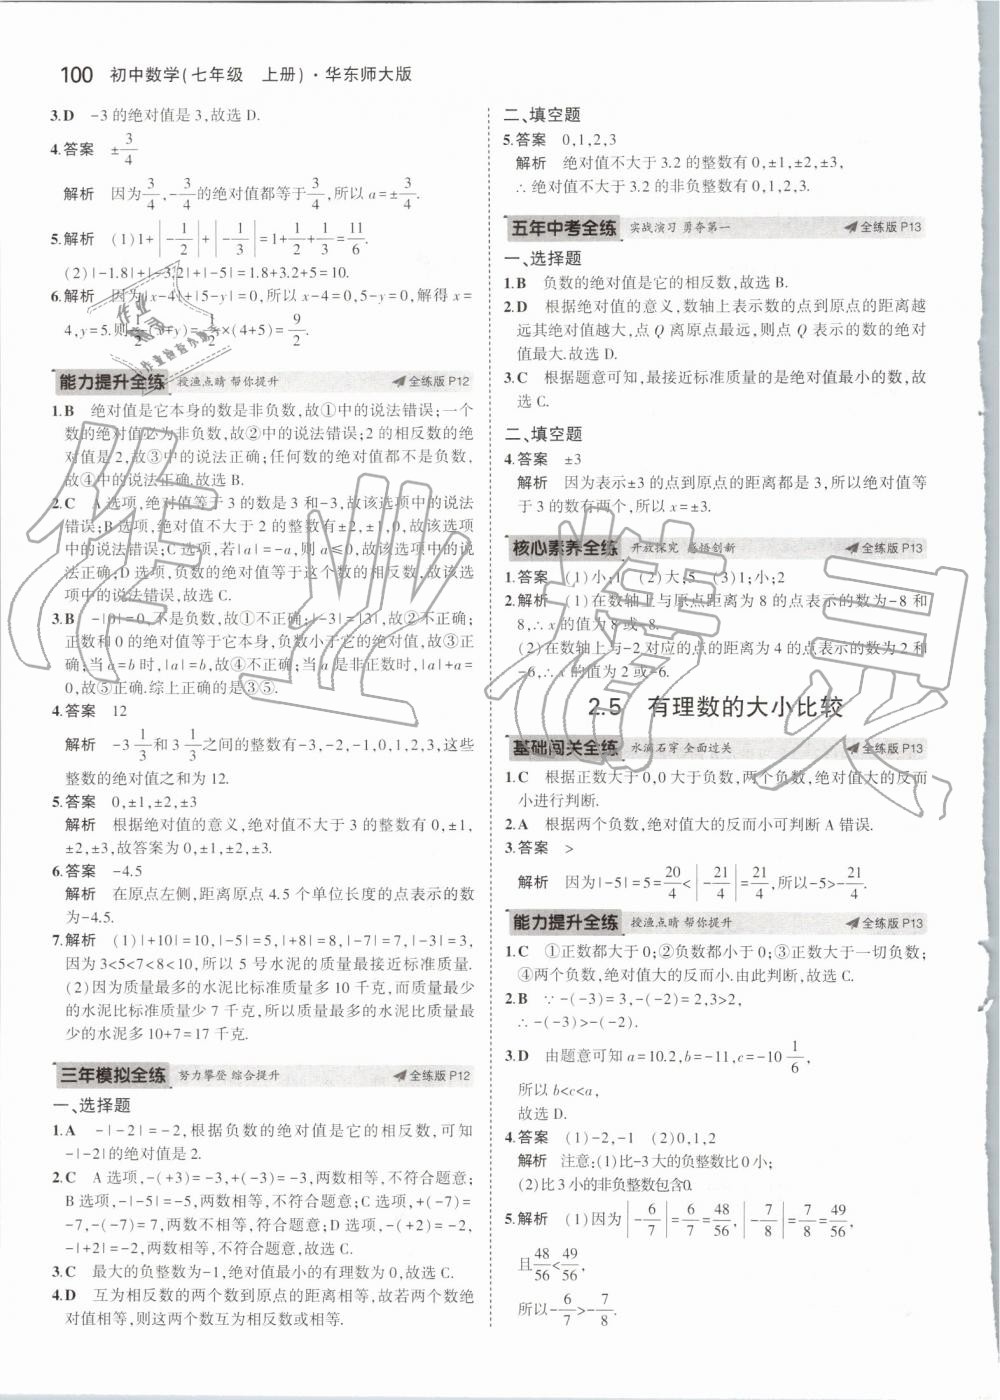 100 初中数学(七年级 上册)·华东师大版
3.D -3的绝对值是3,故选D.
4.答案 ±3/4
解析 因为3/4,-3/4的绝对值都等于3/4,所以a=±3/4.
5.解析 (1)1+|-1/2|+|-1/3|=1+1/2+1/3=11/6.
(2)|-1.8|+|-3.2|+|-5|=1.8+3.2+5=10.
6.解析 因为|x-4|+|5-y|=0,所以x-4=0,5-y=0,解得x=
4,y=5.则1/2(x+y)=1/2×(4+5)=9/2.
能力提升全练 授渔点睛 帮你提升 全练版P12
1.B 绝对值是它本身的数是非负数,故①中的说法错误;一个
数的绝对值必为非负数,故②中的说法错误;2的相反数的绝
对值是2,故③中的说法正确;任何数的绝对都不是负数,
故④中的说法正确.故选B.
2.C A选项,绝对值等于3的数是3和-3,故该选项中的说法
错误;B选项,绝对值不大于2的整数有±2,±1,0,故该选项中
的说法错误;C选项,若|a|=-a,则a≤0,故该选项中的说
法正确;D选项,负数的绝对值等于这个数的相反数,故该选
项中的说法错误.故选C.
3.B -|0|=0,不是负数,故①不正确;|-3|=|3|,故②不正确;
正数和0的绝对值等于它本身,负数小于它的绝对值,故③正
确;当a=b时,|a|=b,故④不正确;当a是非正数时,|a|+a=
0,故⑤正确.综上正确的是③⑤.
4.答案 12
解析 -3 1/3和3 1/3之间的整数有-3,-2,-1,0,1,2,3,这些
整数的绝对值之和为12.
5.答案 0,±1,±2,±3
解析 根据绝对值的意义,绝对值不大于3的整数有0,±1,
±2,±3,故答案为0,±1,±2,±3.
6.答案 -4.5
解析 在原点左侧,距离原点4.5个单位长度的点表示的数
为-4.5.
7.解析 (1)|+10|=10,|-5|=5,|+8|=8,|-7|=7,|-3|=3.
因为3<5<7<8<10,所以5号水泥的质量最接近标准质量.
(2)因为质量最多的水泥比标准质量多10千克,而质量最少
的水泥比标准质量少7千克,所以质量最多的水泥比质量最
少的水泥多10+7=17千克.
三年模拟全练 努力攀登 综合提升 全练版P12
一、选择题
1.A -|-2|=-2,根据负数的绝对值是它的相反数,可知
-|-2|的绝对值是2.
2.C A选项,-(+3)=-3,+(-3)=-3,两数相等,不符合题意;
B选项,-|-5|=-5,两数相等,不符合题意;C选项,+(-7)=
-7,-(-7)=7,两数不相等,符合题意;D选项,-(+2)=-2,
-|+2|=-2,两数相等,不符合题意.故选C.
3.C 最大的负整数为-1,绝对值最小的有理数为0.故选C.
4.D 互为相反数的两个数到原点的距离相等,故若两个数绝
对值相等,则这两个数互为相反数或相等.
二、填空题
5.答案 0,1,2,3
解析 绝对值不大于3.2的整数有0,±1,±2,±3,
∴绝对值不大于3.2的非负整数有0,1,2,3.
五年中考全练 实战演习 勇夺第一 全练版P13
一、选择题
1.B 负数的绝对值是它的相反数,故选B.
2.D 根据绝对值的意义,数轴上表示数的点到原点的距离越
远其绝对值越大,点Q离原点最远,则点Q表示的数的绝对
值最大.故选D.
3.C 根据题意可知,最接近标准质量的是绝对值最小的数,故
选C.
二、填空题
4.答案 ±3
解析 因为表示±3的点到原点的距离都是3,所以绝对值等
于3的数有两个,所以x=±3.
核心素养全练 开放探究 感悟创新 全练版P13
1.答案 (1)小;1 (2)大;5 (3)1;小;2
2.解析 (1)在数轴上与原点距离为8的点表示的数为-8和
8,∴x的值为8或-8.
(2)在数轴上与-2对应的点的距离为4的点表示的数为2和
-6,∴x的值为2或-6.
2.5 有理数的大小比较
基础闯关全练 水滴石穿 全面过关 全练版P13
1.C 根据正数大于0,0大于负数,两个负数,绝对值大的反而
小进行判断.
2.A 根据两个负数,绝对值大的反而小可判断A错误.
3.答案 >
解析 因为|-5|=5=20/4<|-21/4|=21/4,所以-5>-21/4.
能力提升全练 授渔点睛 帮你提升 全练版P13
1.C ①正数都大于0;②负数都小于0;③正数大于一切负数;
④两个负数,绝对值大的反而小.由此判断,故选C.
2.B ∵-(-3)=3,-(-2)=2,3>2,
∴-(-3)>-(-2).
3.D 由题意可知a=10.2,b=-11,c=-10 1/6,
所以b<c<a,
故选D.
4.答案 (1)-2,-1 (2)0,1,2
解析 注意:(1)比-3大的负整数比0小;
(2)比3小的非负整数包含0.
5.解析 (1)因为|-6/7|=6/7=48/56,|-7/8|=7/8=49/56,
且48/56<49/56,
所以-6/7>-7/8.
作业精灵